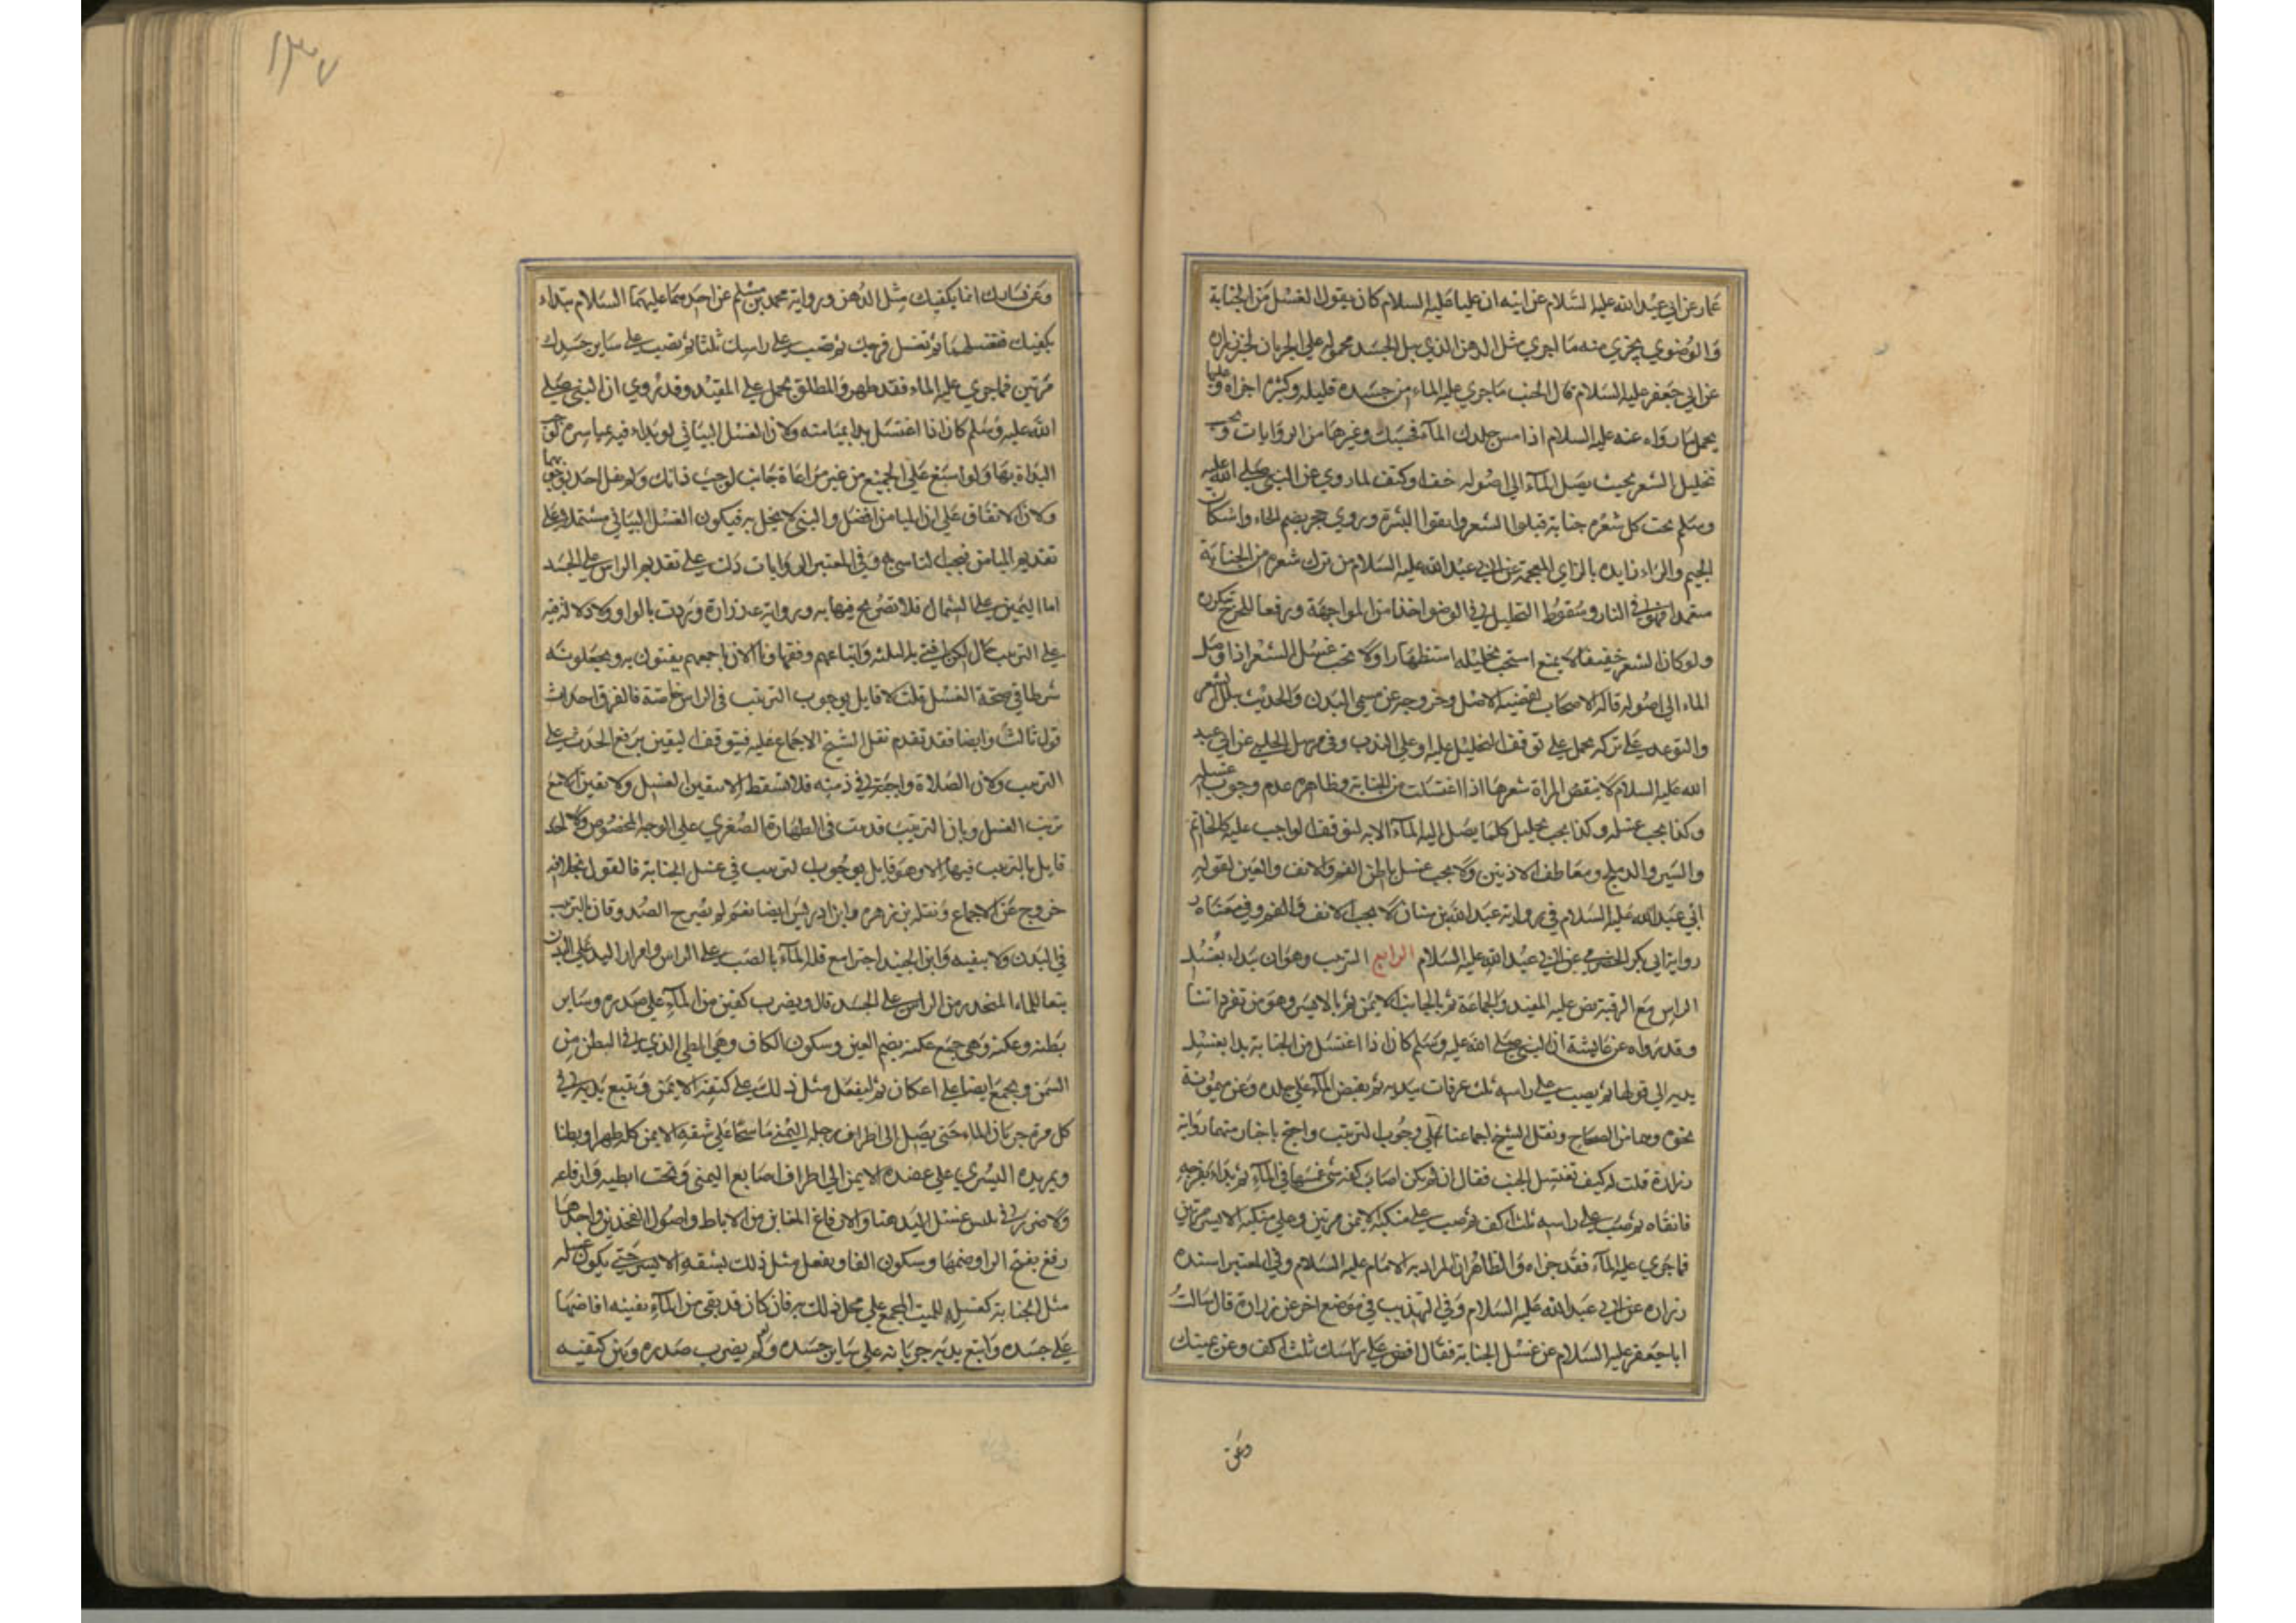 عمار عن ابي عبد الله عليه السلام عن ابيه ان عليا عليه السلام كان يقول الغسل من الجنابة
والوضوء يجزي منه ما اجزي مثل الدهن الذي يبل الجسد محمول على الجريان لخبر زرارة
عن ابي جعفر عليه السلام قال الجنب ما جري عليه الماء من جسده قليله وكثيره اجزاه وعليها
يحمل ما رواه عنه عليه السلام اذا مس جلدك الماء فحسبك وغيرها من الروايات ويجب
تخليل الشعر بحيث يصل الماء الى اصوله خف او كثف لما روي عن النبي صلى الله عليه
وسلم تحت كل شعره جنابة فبلوا الشعر وانقوا البشرة وروي حجر بضم الحاء واسكان
الجيم والراء زايده بالزاي المعجمة عن ابي عبد الله عليه السلام من ترك شعره من الجنابة
متعمدا فهو في النار وسقوط التخليل في الوضوء اخذا من المواجهة ورفعا للحرج بتكرره
ولو كان الشعر خفيفا لا يمنع استحب تخليله استظهارا ولا يجب غسل الشعر اذا وصل
الماء الى اصوله قاله الاصحاب لقضية الاصل وخروجه عن مسمى البدن والحديث ببل الشعر
والتوعد على تركه محمل على توقف التخليل عليه او على الندب وفي مرسل الحلبي عن ابي عبد
الله عليه السلام لا ينقض المراة شعرها اذا اغتسلت من الجنابة وظاهره عدم وجوب غسله
وكذا يجب غسله وكذا يجب تخليل كلما يصل اليه الماء الا به لتوقف الواجب عليه كالخاتم
والسير والدملج ومعاطف الاذنين ولا يجب غسل باطن الفم والانف والعين لقوله
ابي عبد الله عليه السلام في رواية عبد الله بن سنان لا يجب الانف والفم وفي معناه
رواية ابي بكر الحضرمي عن ابي عبد الله عليه السلام الرابع الترتيب وهو ان يبداء بغسل
الراس مع الرقبة نص عليه المفيد والجماعة ثم بالجانب الايمن ثم بالايسر وهو من تفرداتنا
وقد رواه عن عايشة ان النبي صلى الله عليه وسلم كان اذا اغتسل من الجنابة بدا بغسل
يديه الى قولها ثم يصب على راسه ثلث غرفات بيديه ثم يفيض الماء على جلده وعن ميمونة
نحوه وهما في الصحاح ونقل الشيخ اجماعنا على وجوب الترتيب واحتج باخبار منها رواية
زرارة قلت له كيف تغتسل الجنب فقال ان لم يكن اصاب كفه شي غمسها في الماء ثم بداء بفرجه
فانقاه ثم صب على راسه ثلث اكف ثم صب على منكبه الايمن مرتين وعلى منكبه الايسر مرتين
فما جري عليه الماء فقد جزاه والظاهر ان المراد به الامام عليه السلام وفي المعتبر اسنده
زراره عن ابي عبد الله عليه السلام وفي التهذيب في موضع اخر عن زرارة قال سالت
ابا جعفر عليه السلام عن غسل الجنابة فقال افض على راسك ثلث اكف وعن يمينك
وعن
١٣٧
وعن يسارك انما يكفيك مثل الدهن ورواية محمد بن مسلم عن احدهما عليهما السلام تبداء
بكفيك فتغسلهما ثم تغسل فرجك ثم تصب على راسك ثلثا ثم تصب على ساير جسدك
مرتين فما جري عليه الماء فقد طهر والمطلق يحمل على المقيد وقد روي ان النبي صلى
الله عليه وسلم كان اذا اغتسل بدا بميامنه ولان الغسل البياني لو بداء فيه بمياسره لوجب
البداة بها ولو اسبغ على الجميع من غير مراعاة جانب لوجب ذلك ولم يقل احد بوجوبهما
ولان الاتفاق على ان الميامن افضل والنبي لا يخل به فيكون الغسل البياني مشتملا على
تقديم الميامن فيجب التاسي به وفي المعتبر الروايات دلت على تقديم الراس على الجسد
اما اليمين على الشمال فلا تصريح فيها به ورواية زرارة وردت بالواو ولا دلالة فيه
على الترتيب قال لكن افتى به الثلثة واتباعهم وفقهاؤنا الان باجمعهم يفتون به ويجعلونه
شرطا في صحة الغسل قلت لا قايل بوجوب الترتيب في الراس خاصة فالفرق احداث
قول ثالث وايضا فقد تقدم نقل الشيخ الاجماع عليه فيتوقف اليقين برفع الحدث على
الترتيب ولان الصلاة واجبة في ذمته فلا تسقط الا بيقين الغسل ولا يقين الا مع
ترتب الغسل وبان الترتيب قد ثبت في الطهارة الصغري على الوجه المخصوص ولا احد
قايل بالترتيب فيها الا وهو قايل بوجوب الترتيب في غسل الجنابة فالقول بخلافه
خروج عن الاجماع ونقله بن زهره وابن ادريس ايضا نعم لم يصرح الصدوقان بالترتيب
في البدن ولا ينفيه وابن الجنيد اجتزا مع قلة الماء بالصب على الراس وامرار اليد على البدن
تبعا للماء المنحدر من الراس على الجسد قال ويضرب كفين من الماء على صدره وساير
بطنه وعكنه وهي جمع عكنه بضم العين وسكون الكاف وهي الطي الذي في البطن من
السمن ويجمع ايضا على اعكان ثم ليفعل مثل ذلك على كتفه الايمن ويتبع يديه في
كل مرة جريان الماء حتى يصل الى اطراف رجله اليمنى ماسحا على شقه الايمن كله ظهرا وبطنا
ويمر يده اليسري على عضده الايمن الى اطراف اصابع اليمنى وتحت ابطيه وارفاغه
ولا ضرر في نكس غسل اليد هنا والارفاغ المغابن من الاباط واصول الفخذين واحدها
رفغ بفتح الرا وضمها وسكون الفا ويفعل مثل ذلك بشقه الايسر حتى يكون غسله
مثل الجنابة كغسله للميت المجمع على محل ذلك به فان كان قد بقي من الماء بقيته افاضها
على جسده واتبع يديه جريانه على ساير جسده ولو لم يضرب صدره وبين كتفيه